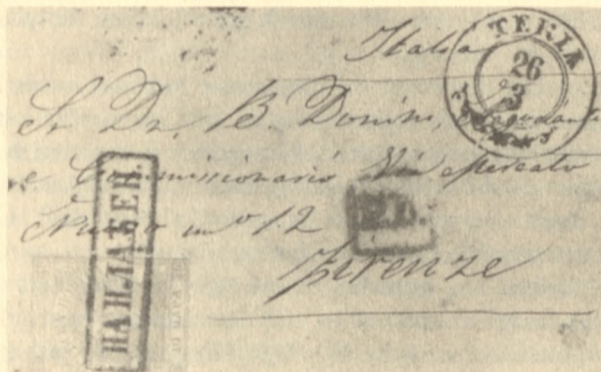 Italia
TERIA
26
3
Sr Dr. B. Donini,
e Commissionario Via Mercato
Nuovo no 12
P.D.
Firenze
НАПЛАЋЕН.